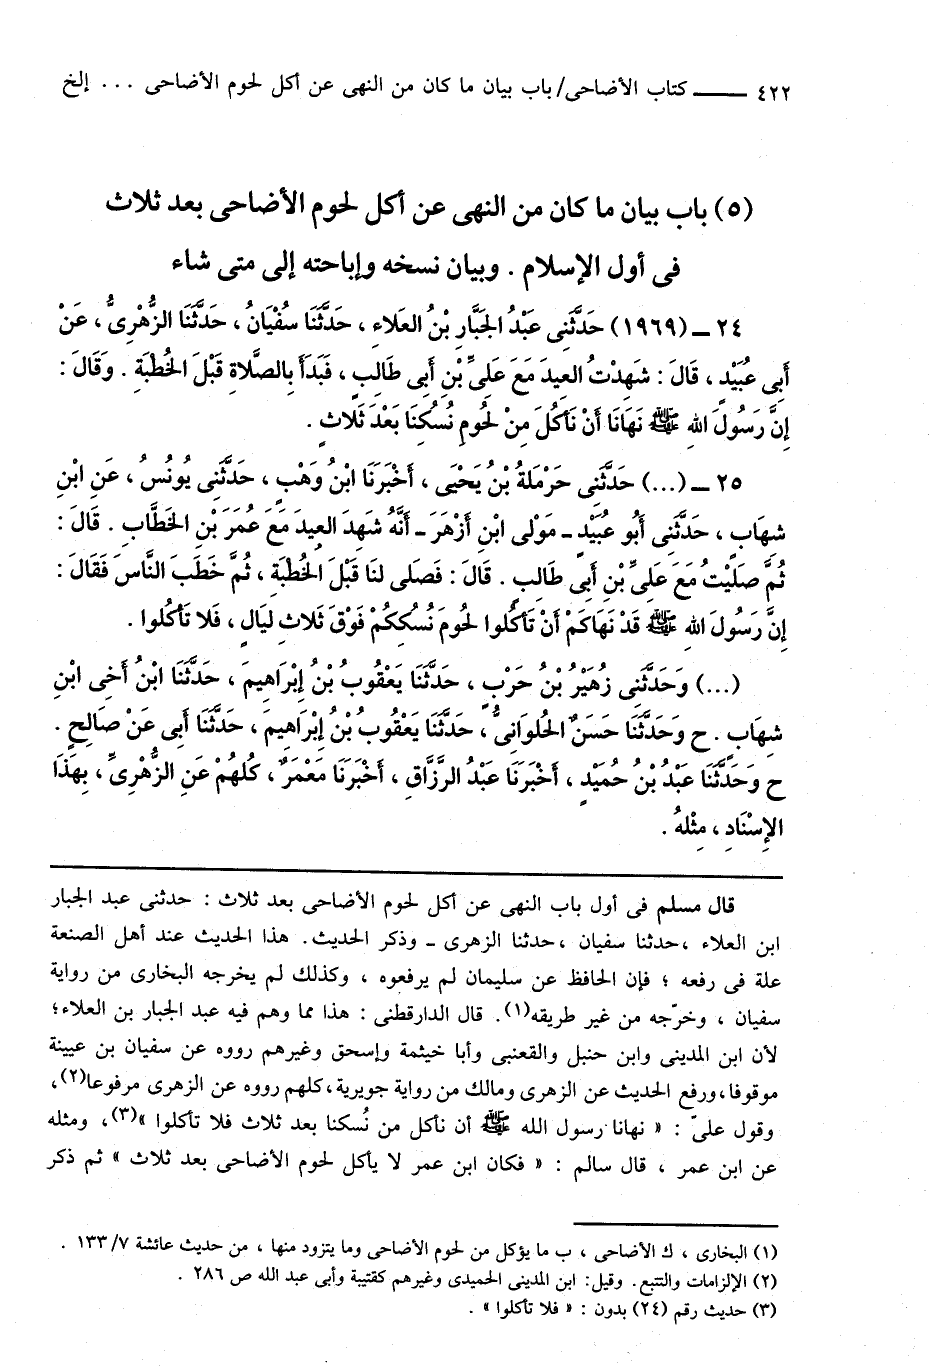 ٤٢٢ ـــــ كتاب الأضاحى/ باب بيان ما كان من النهى عن أكل لحوم الأضاحى ... إلخ
(٥) باب بيان ما كان من النهى عن أكل لحوم الأضاحى بعد ثلاث
فى أول الإسلام . وبيان نسخه وإباحته إلى متى شاء
٢٤ ـ (١٩٦٩) حَدَّثَنِى عَبْدُ الجَبَّارِ بْنُ العَلاء ، حَدَّثَنَا سُفْيَانُ ، حَدَّثَنَا الزُّهْرِىُّ ، عَنْ
أَبِى عُبَيْدٍ ، قَالَ : شَهِدْتُ العِيدَ مَعَ عَلِىِّ بْنِ أَبِى طَالِبٍ ، فَبَدَأَ بِالصَّلاةِ قَبْلَ الخُطْبَةِ . وَقَالَ :
إِنَّ رَسُولَ اللهِ ﷺ نَهَانَا أَنْ نَأْكُلَ مِنْ لحُومِ نُسُكِنَا بَعْدَ ثَلاثٍ .
٢٥ ـ (...) حَدَّثَنِى حَرْمَلَةُ بْنُ يَحْيَى ، أَخْبَرَنَا ابْنُ وَهْبٍ ، حَدَّثَنِى يُونُسُ ، عَنِ ابْنِ
شِهَابٍ ، حَدَّثَنِى أَبُو عُبَيْدٍ ـ مَوْلى ابْنِ أَزْهَرَ ـ أَنَّهُ شَهِدَ العِيدَ مَعَ عُمَرَ بْنِ الخَطَّابِ . قَالَ :
ثُمَّ صَلَيْتُ مَعَ عَلِىِّ بْنِ أَبِى طَالِبٍ . قَالَ : فَصَلى لنَا قَبْلَ الخُطْبَةِ ، ثُمَّ خَطَبَ النَّاسَ فَقَالَ :
إِنَّ رَسُولَ اللهِ ﷺ قَدْ نَهَاكُمْ أَنْ تَأْكُلُوا لحُومَ نُسُكِكُمْ فَوْقَ ثَلاثِ ليَالٍ ، فَلا تَأْكُلوا .
(...) وَحَدَّثَنِى زُهَيْرُ بْنُ حَرْبٍ ، حَدَّثَنَا يَعْقُوبُ بْنُ إِبْرَاهِيمَ ، حَدَّثَنَا ابْنُ أَخِى ابْنِ
شِهَابٍ . ح وَحَدَّثَنَا حَسَنٌ الحُلوَانِىُّ ، حَدَّثَنَا يَعْقُوبُ بْنُ إِبْرَاهِيمَ ، حَدَّثَنَا أَبِى عَنْ صَالِحٍ .
ح وَحَدَّثَنَا عَبْدُ بْنُ حُمَيْدٍ ، أَخْبَرَنَا عَبْدُ الرَّزَّاقِ ، أَخْبَرَنَا مَعْمَرٌ ، كُلهُمْ عَنِ الزُّهْرِىِّ ، بِهَذَا
الإِسْنَادِ ، مِثْلهُ .
قال مسلم فى أول باب النهى عن أكل لحوم الأضاحى بعد ثلاث : حدثنى عبد الجبار
ابن العلاء ، حدثنا سفيان ، حدثنا الزهرى ـ وذكر الحديث. هذا الحديث عند أهل الصنعة
علة فى رفعه ؛ فإن الحافظ عن سليمان لم يرفعوه ، وكذلك لم يخرجه البخارى من رواية
سفيان ، وخرّجه من غير طريقه(١). قال الدارقطنى : هذا مما وهم فيه عبد الجبار بن العلاء؛
لأن ابن المدينى وابن حنبل والقعنبى وأبا خيثمة وإسحق وغيرهم رووه عن سفيان بن عيينة
موقوفا، ورفع الحديث عن الزهرى ومالك من رواية جويرية، كلهم رووه عن الزهرى مرفوعا(٢)،
وقول علىّ : « نهانا رسول الله ﷺ أن نأكل من نُسكنا بعد ثلاث فلا تأكلوا »(٣)، ومثله
عن ابن عمر ، قال سالم : « فكان ابن عمر لا يأكل لحوم الأضاحى بعد ثلاث » ثم ذكر
(١) البخارى ، ك الأضاحى ، ب ما يؤكل من لحوم الأضاحى وما يتزود منها ، من حديث عائشة ٧/ ١٣٣ .
(٢) الإلزامات والتتبع. وقيل: ابن المدينى الحميدى وغيرهم كقتيبة وأبى عبد الله ص ٢٨٦ .
(٣) حديث رقم (٢٤) بدون : « فلا تأكلوا » .